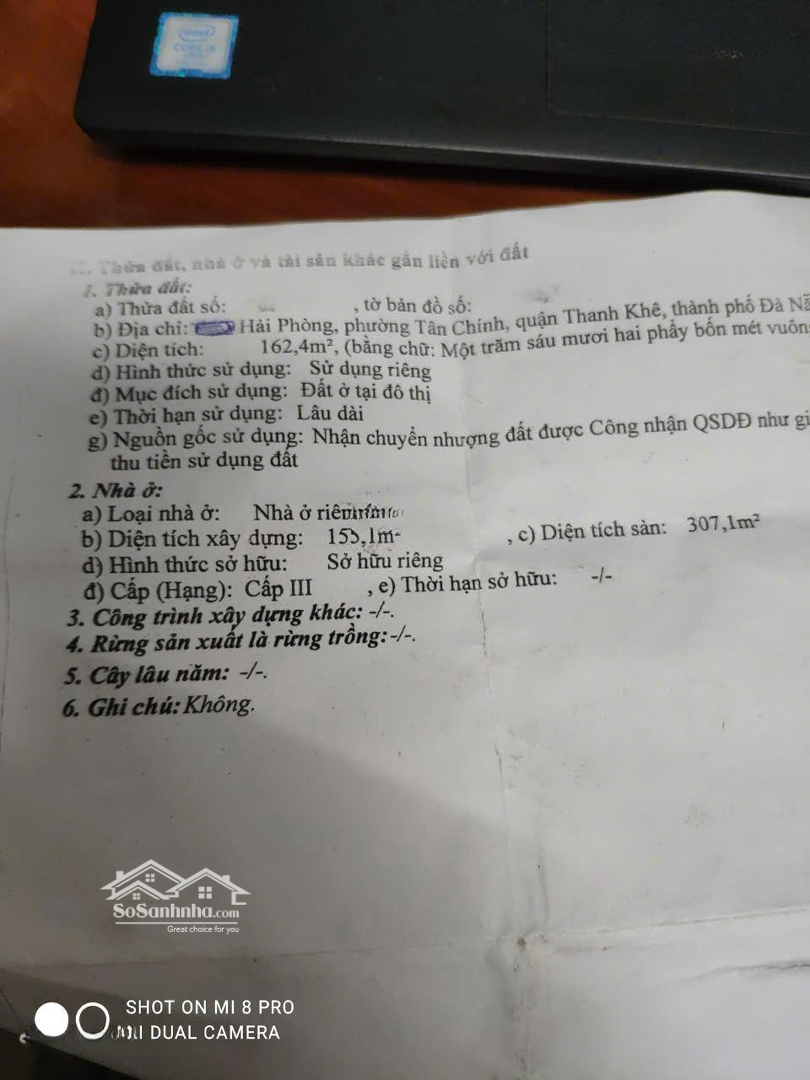 intel
CORE i5
II. Thửa đất, nhà ở và tài sản khác gắn liền với đất
1. Thửa đất:
a) Thửa đất số: , tờ bản đồ số:
b) Địa chỉ: Hải Phòng, phường Tân Chính, quận Thanh Khê, thành phố Đà
c) Diện tích: 162,4m², (bằng chữ: Một trăm sáu mươi hai phẩy bốn mét vuông
d) Hình thức sử dụng: Sử dụng riêng
đ) Mục đích sử dụng: Đất ở tại đô thị
e) Thời hạn sử dụng: Lâu dài
g) Nguồn gốc sử dụng: Nhận chuyển nhượng đất được Công nhận QSDĐ như gi
thu tiền sử dụng đất
2. Nhà ở:
a) Loại nhà ở: Nhà ở
b) Diện tích xây dựng: , c) Diện tích sàn: 307,1m²
d) Hình thức sở hữu: Sở hữu riêng
đ) Cấp (Hạng): Cấp III , e) Thời hạn sở hữu: -/-
3. Công trình xây dựng khác: -/-.
4. Rừng sản xuất là rừng trồng: -/-.
5. Cây lâu năm: -/-.
6. Ghi chú: Không.
SoSanhnha.com
Great choice for you
SHOT ON MI 8 PRO
MI DUAL CAMERA